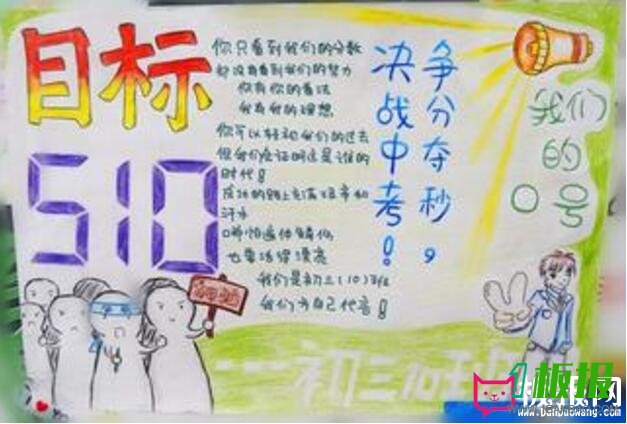 目标
510
你只看到我们的分数
却没有看到我们的努力
你有你的看法
我有我的理想
你可以轻视我们的过去
但我们会证明这是谁的
时代！
成功的路上充满艰辛和
汗水
哪怕遍体鳞伤
也要活得漂亮
我们是初三(10)班
我们为自己代言！
争分夺秒，
决战中考！
我们
的
口号
板报网
www.banbaowang.com